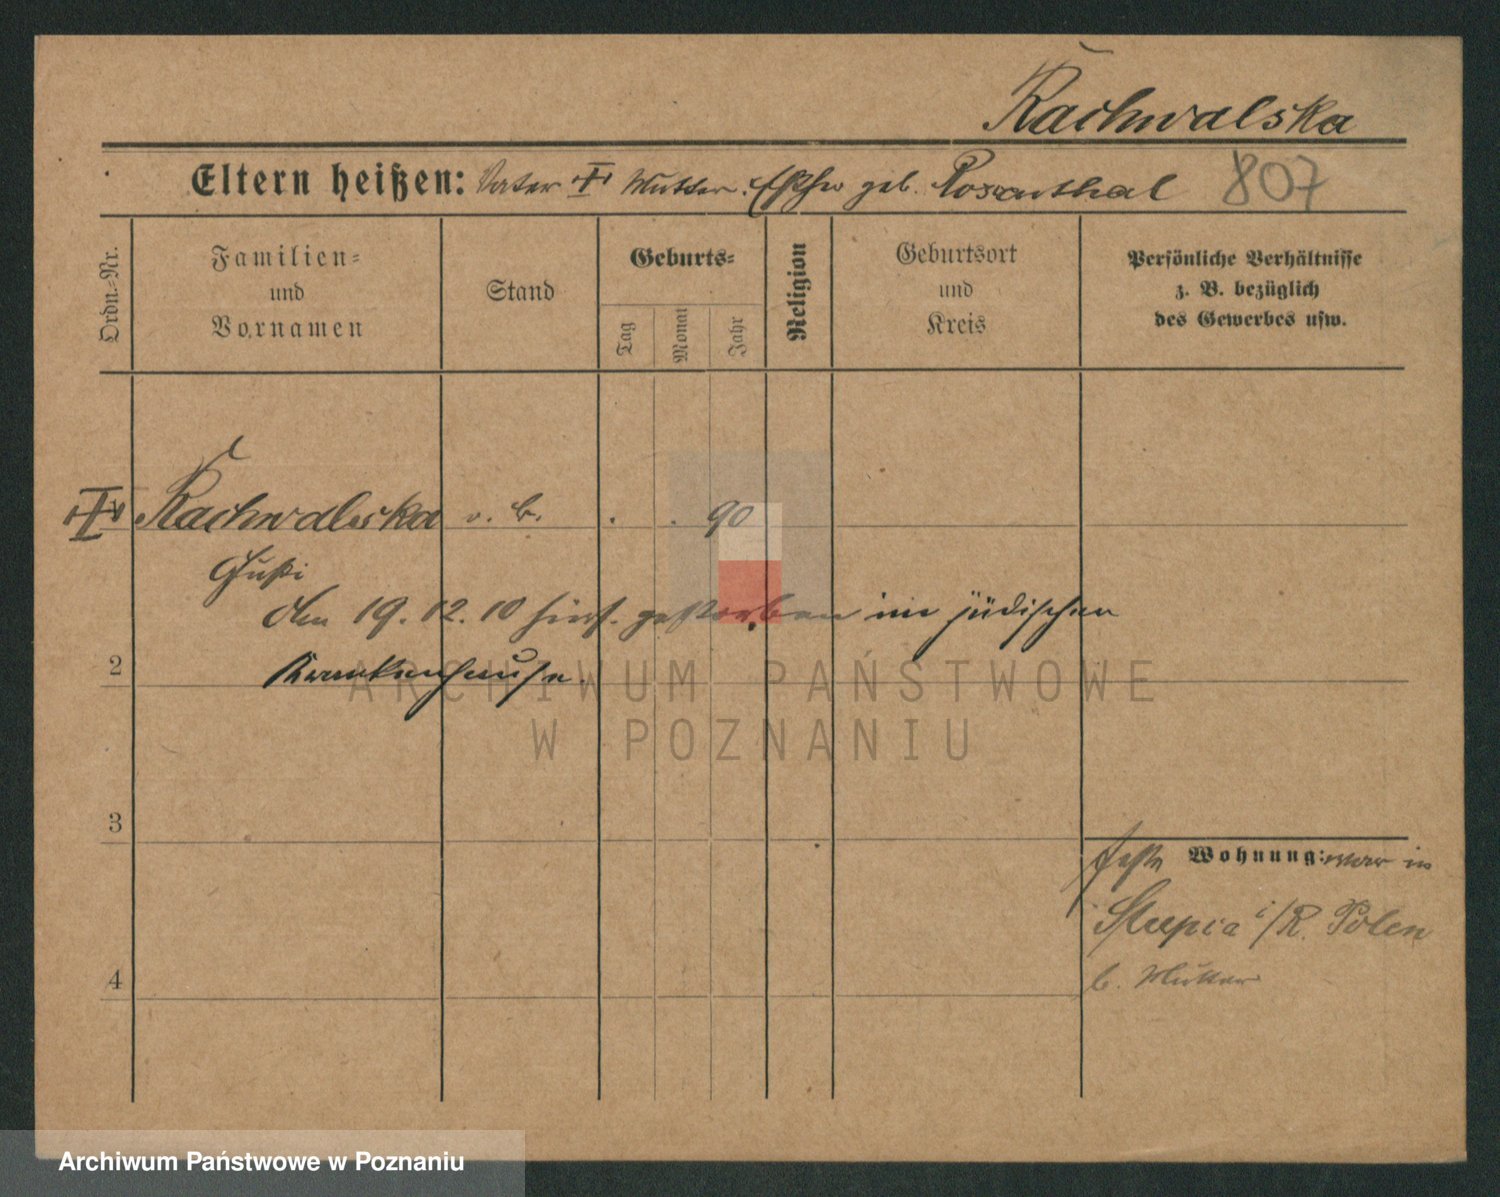 Rachwalska
Eltern heißen: Vater ✝ Mutter: Esther geb. Rosenthal 807
Ordn.-Nr.
Familien-
und
Vornamen
Stand
Geburts-
Tag
Monat
Jahr
Religion
Geburtsort
und
Kreis
Persönliche Verhältnisse
z. B. bezüglich
des Gewerbes usw.
✝ Rachwalska o. B. . . 90
Gusti
den 19. 12. 10 hies. gestorben im jüdischen
2 Krankenhause.
3
feste Wohnung: war in
Slupia i/R. Polen
4 b. Mutter
ARCHIWUM PAŃSTWOWE
W POZNANIU
Archiwum Państwowe w Poznaniu